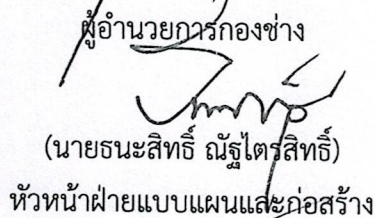 ผู้อำนวยการกองช่าง
(นายธนะสิทธิ์ ณัฐไตรสิทธิ์)
หัวหน้าฝ่ายแบบแผนและก่อสร้าง